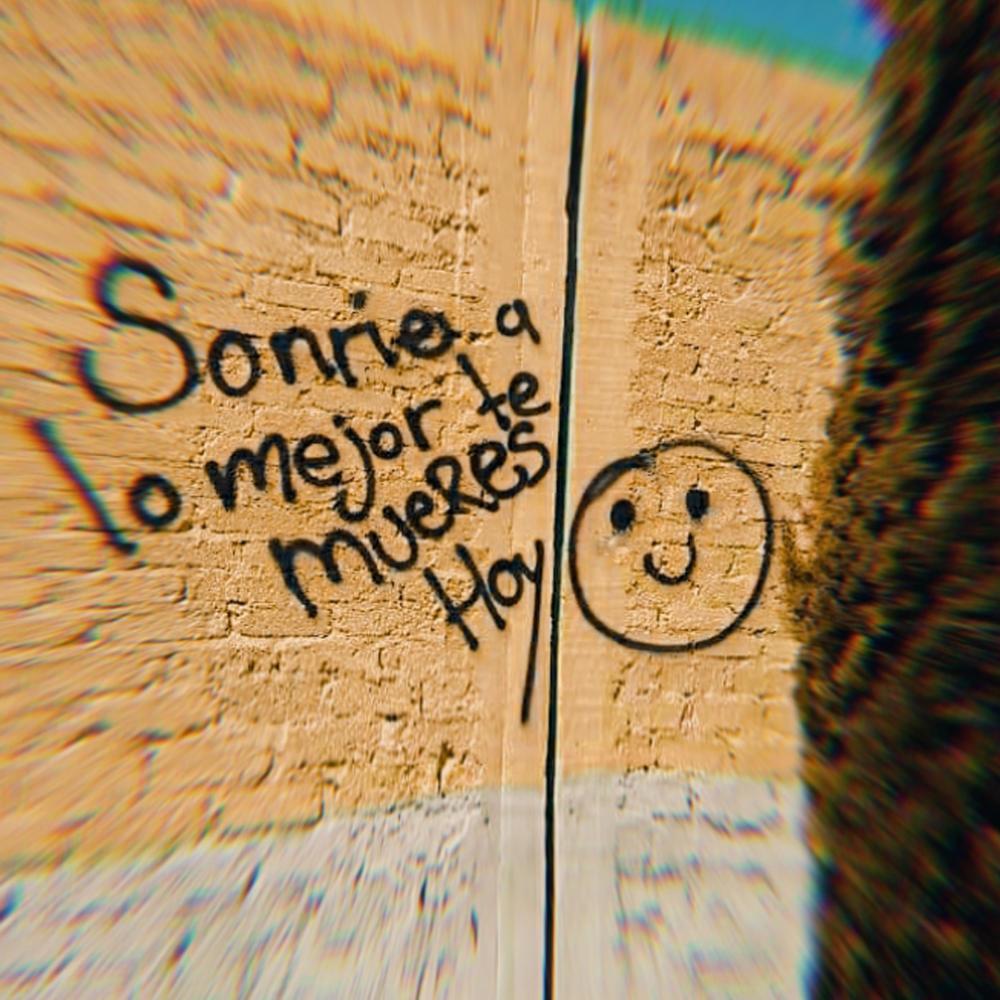 Sonrie a
lo mejor te
mueRes
Hoy